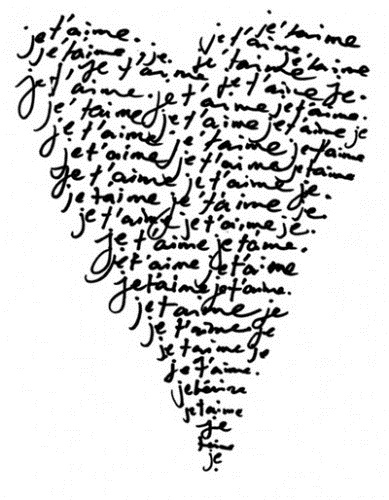 je t'aime. je t'aime
je t'aime, je. je t'aime
je t'. je t'aime je t'aime je t'aime
je t'aime. je t'aime je t'aime je.
je t'aime je t'aime je t'aime.
je t'aime je t'aime je t'aime je
je t'aime je t'aime je t'aime
je t'aime je t'aime je t'aime
je t'aime je t'aime je.
je taime je t'aime je.
je t'aime je t'aime je.
je t'aime je t'aime.
je t'aime je t'aime
je taime je t'aime.
je t'aime je
je t'aime je
je taime je
je t'aime.
je taime
je
taime
je